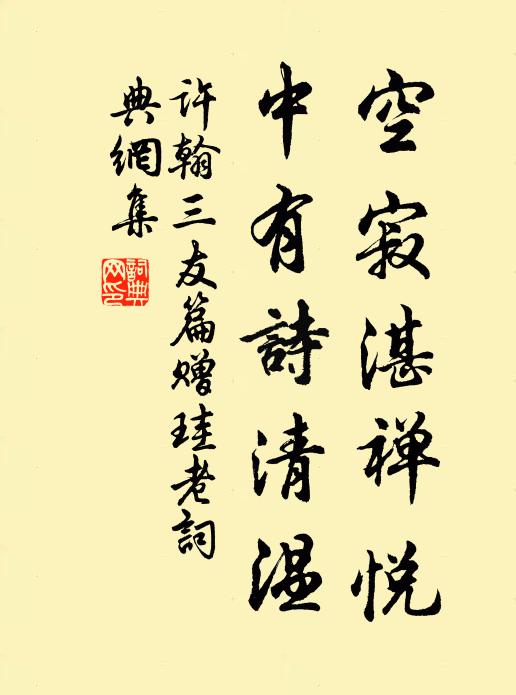 空寂湛禅悦
中有詩清温
许翰三友篇赠珪老詞
典網集
詞典网印